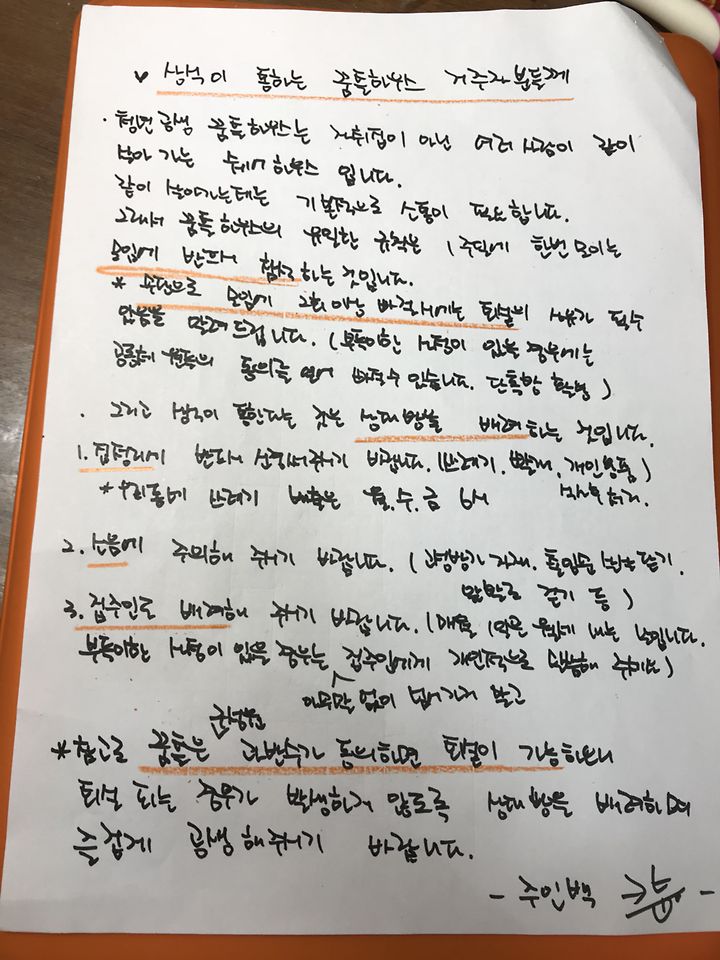 ✓ 상식이 통하는 꿈틀하우스 거주자분들께
· 청년공생 꿈틀하우스는 자취집이 아닌 여러 사람이 같이
살아 가는 쉐어하우스 입니다.
같이 살아가는데는 기본적으로 소통이 필요합니다.
그래서 꿈틀하우스의 유일한 규칙은 1주일에 한번 모이는
모임에 반드시 참석하는 것입니다.
* 무단으로 모임에 2회이상 빠질시에는 퇴실의 사유가 될수
있음을 알려드립니다. (부득이한 사정이 있을 경우에는
공동체 원들의 동의를 얻어 빠질수 있습니다. 단톡방 활용)
· 그리고 상식이 통한다는 것은 상대방을 배려하는 것입니다.
1. 집정리에 반드시 신경써주시기 바랍니다. (쓰레기. 빨래. 개인용품)
* 우리동네 쓰레기 배출은 월.수.금 6시
2. 소음에 주의해 주시기 바랍니다. (과 자제. 출입문 살살 닫기.
걷기 등)
3. 집주인도 배려해 주시기 바랍니다. (매월 1일은 월세 내는 날입니다.
부득이한 사정이 있을 경우는 집주인에게 개인적으로 말씀해 주세요)
아무말 없이 넘어가지 말고
* 참고로 꿈틀은 구성원 과반수가 동의하면 퇴실이 가능하오니
퇴실 되는 경우가 발생하지 않도록 상대방을 배려하며
즐겁게 공생해주시기 바랍니다.
- 주인백 -